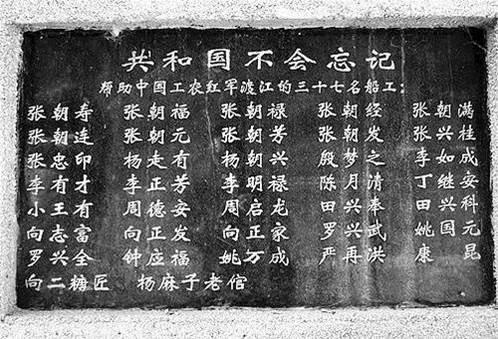 共和国不会忘记
帮助中国工农红军渡江的三十七名船工:
张朝寿 张朝福 张朝禄 张朝经 张朝满
张朝连 张朝元 张朝芳 张朝发 张兴桂
张忠印 杨走有 杨朝兴 殷梦之 李如成
李有才 李正芳 李明禄 陈月清 丁继安
小王有 周德安 周启龙 田兴奉 田兴科
向志富 向正发 向正家 罗兴武 姚国元
罗兴全 钟应福 姚万成 严再洪 康昆
向二糖匠 杨麻子老倌